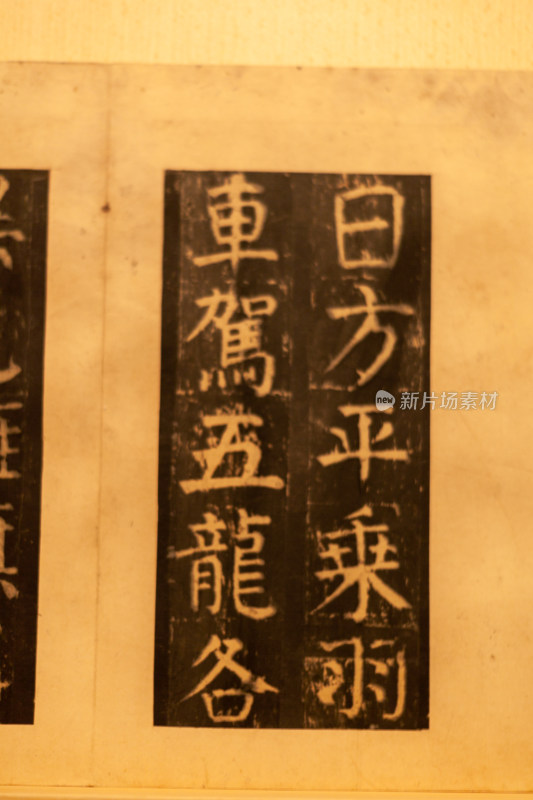 日方平乗羽
車駕五龍各
new 新片场素材